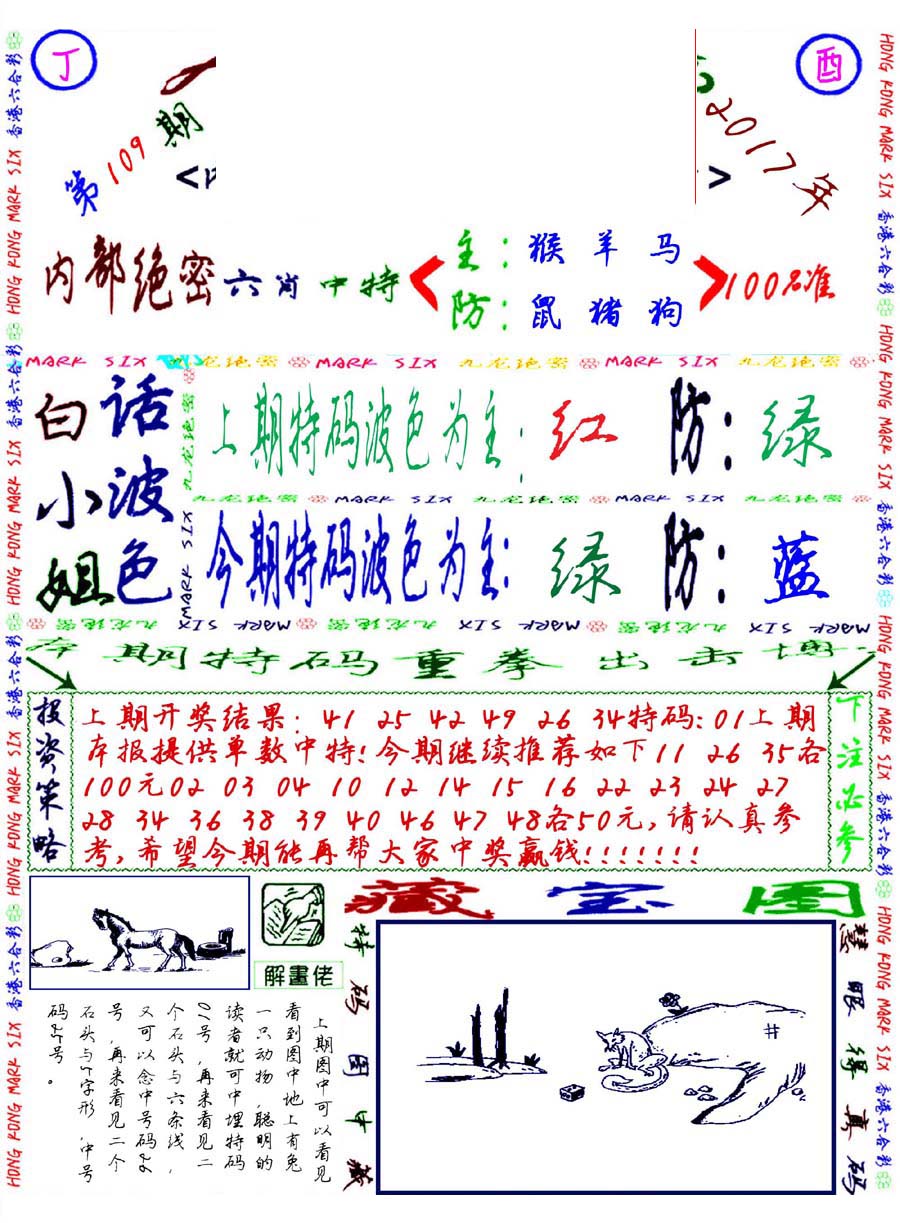 丁
酉
第109期
2017年
内部绝密六肖中特
主：猴 羊 马
防：鼠 猪 狗
100%准
MARK SIX 九龙绝密 MARK SIX 九龙绝密 MARK SIX 九龙绝密
白话
小波
姐色
上期特码波色为主：红 防：绿
九龙绝密 MARK SIX 九龙绝密 MARK SIX 九龙绝密
今期特码波色为主：绿 防：蓝
九龙绝密 MARK SIX 九龙绝密 MARK SIX 九龙绝密 MARK SIX
本期特码重拳出击博
投资策略
上期开奖结果：41 25 42 49 26 34特码:01上期
本报提供单数中特!今期继续推荐如下11 26 35各
100元02 03 04 10 12 14 15 16 22 23 24 27
28 34 36 38 39 40 46 47 48各50元,请认真参
考,希望今期能再帮大家中奖赢钱!!!!!!!
下注必参
藏宝图
解畫佬
特码图中藏
慧眼得真码
上期图中可以看见
看到图中地上有兔
一只动物,聪明的
读者就可中埋特码
01号,再来看见二
个石头与六条线,
又可以念中号码26
号,再来看见二个
石头与5字形,中号
码25号。
香港六合彩 HONG KONG MARK SIX 香港六合彩 HONG KONG MARK SIX 香港六合彩 HONG KONG MARK SIX 香港六合彩 HONG KONG MARK SIX
HONG KONG MARK SIX 香港六合彩 HONG KONG MARK SIX 香港六合彩 HONG KONG MARK SIX 香港六合彩 HONG KONG MARK SIX 香港六合彩